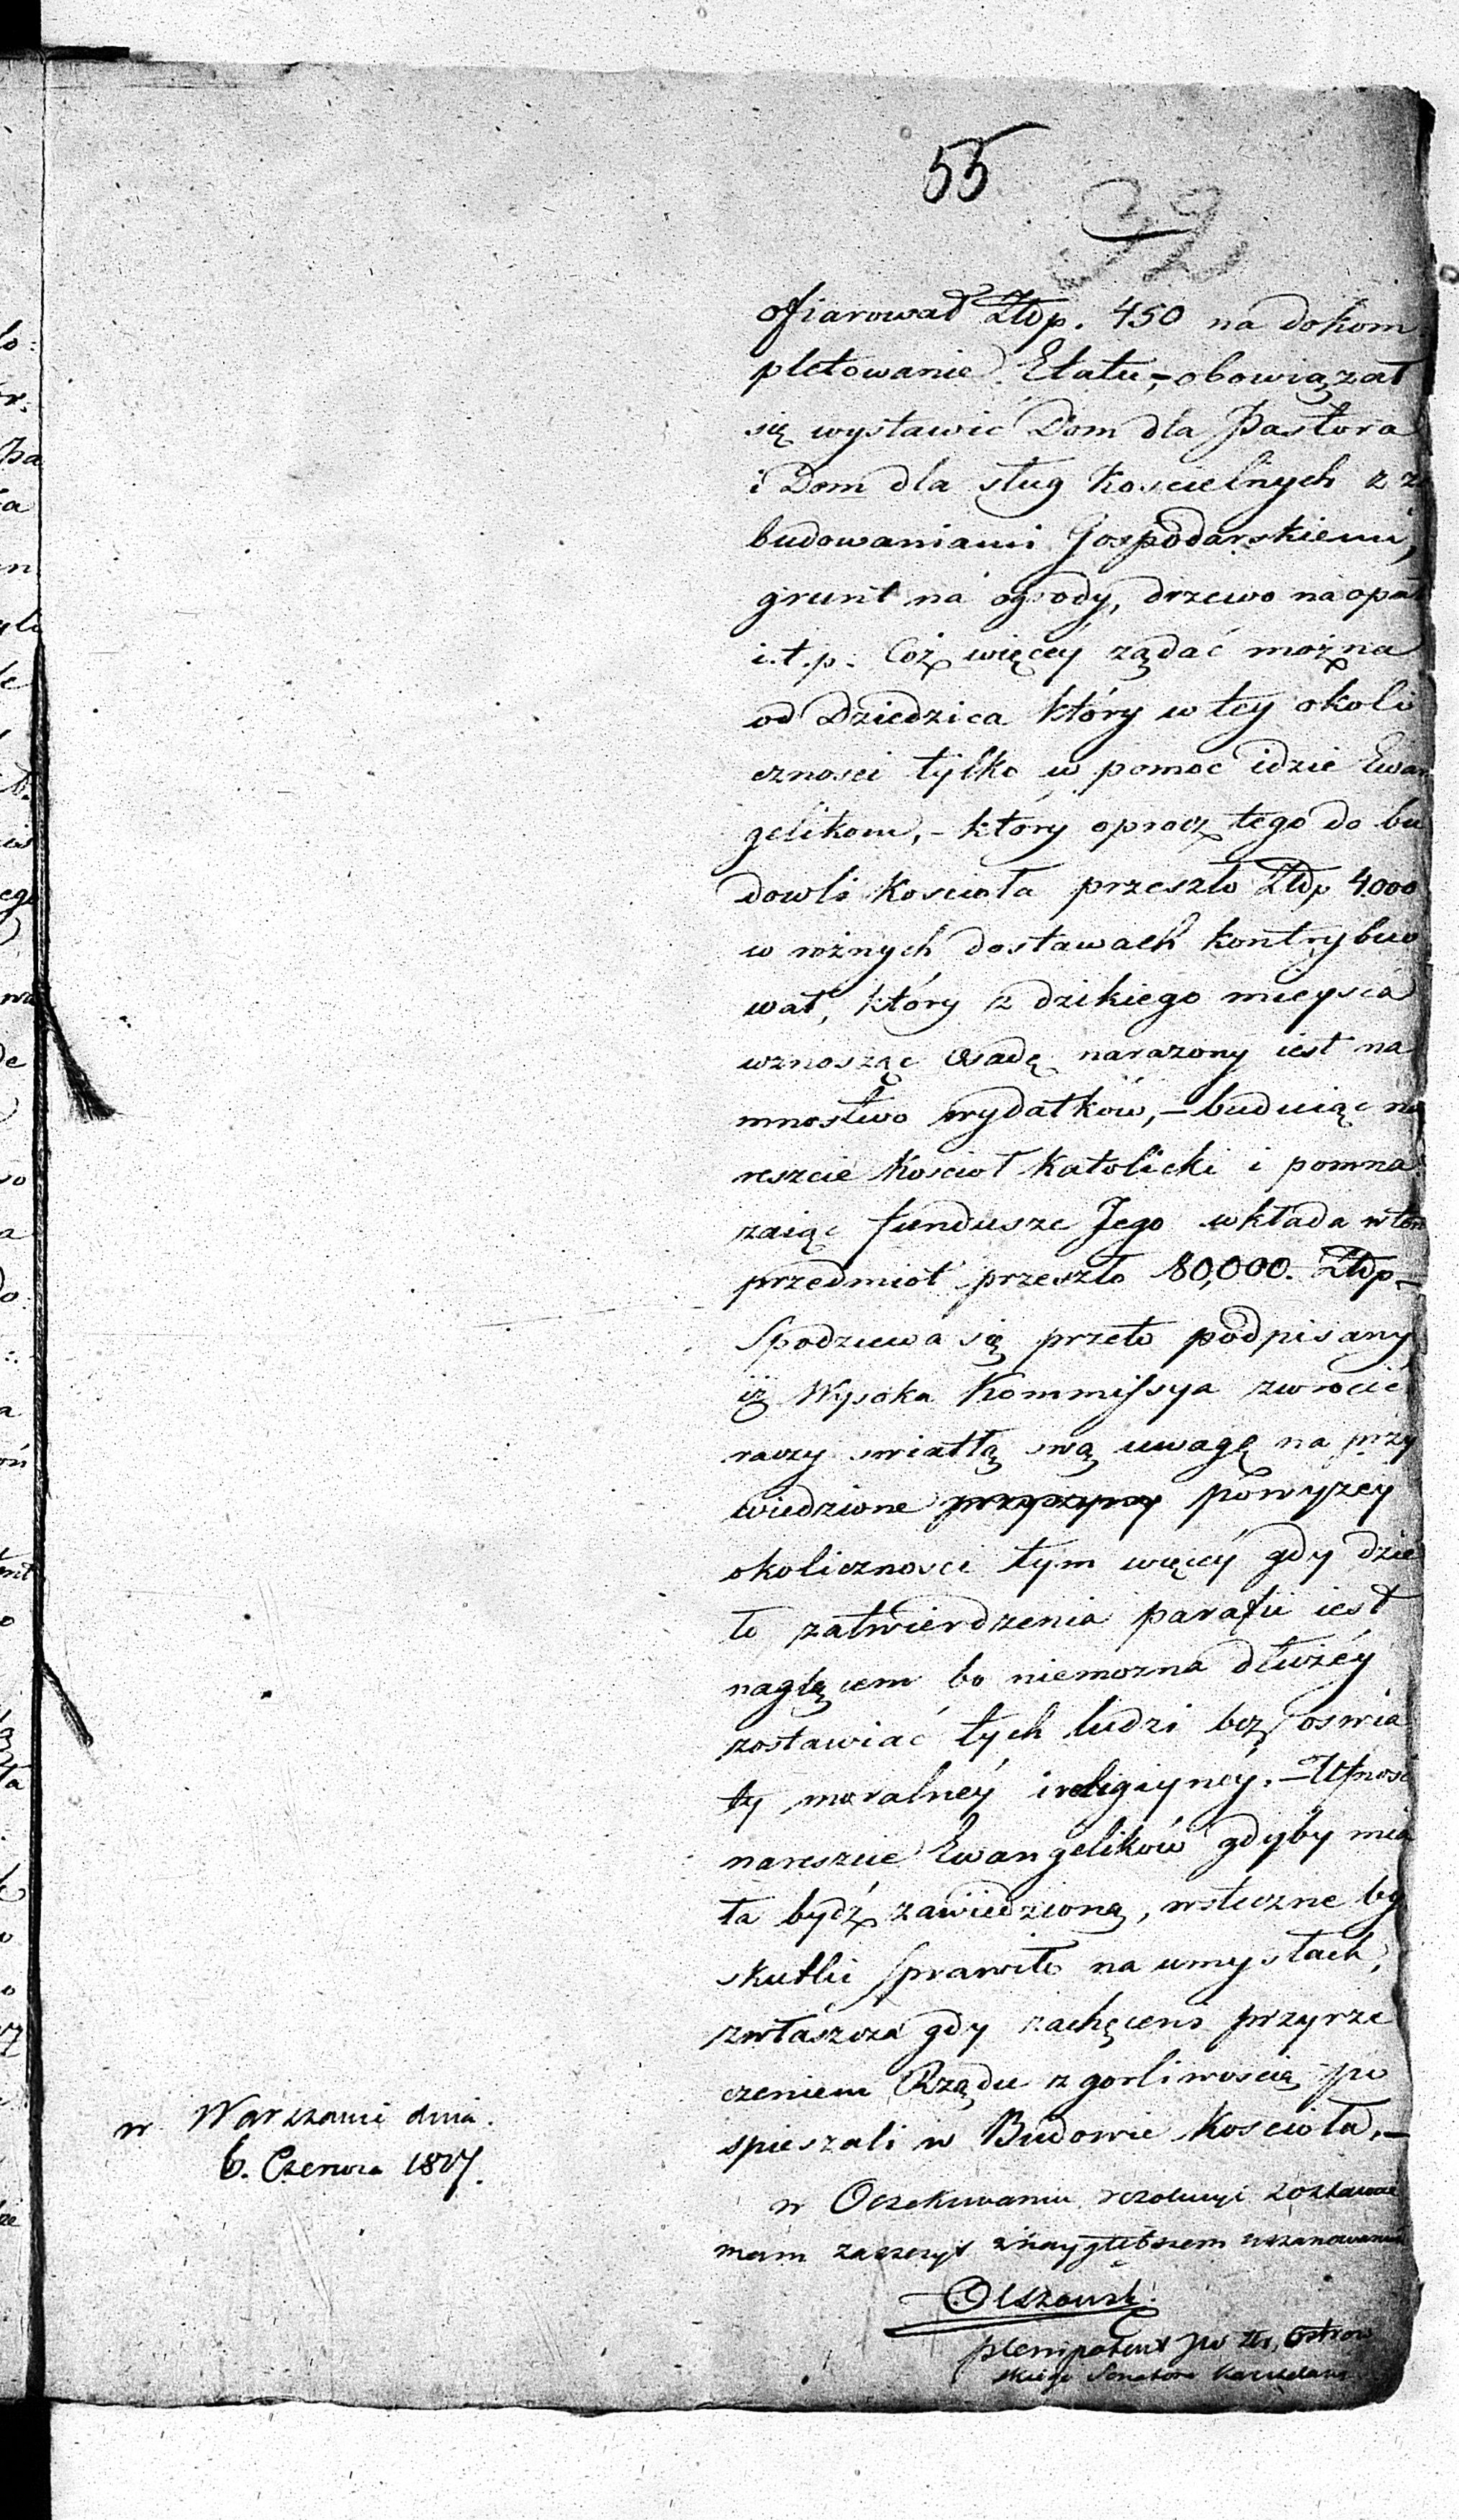 55
32
ofiarował Złłp. 450 na dokom
pletowanie Etatu, - obowiązał
się wystawić Dom dla Pastora
i Dom dla sług Koscielnych z za
budowaniami Gospodarskiemi,
grunt na ogrody, drzewo na opał
i.t.p. Coż więcey żądać można
od Dziedzica który w tey okoli
cznosci tylko w pomoc idzie Ewan
gelikom, - który oprocz tego do bu
dowli Koscioła przeszło Złłp 4000
w rożnych dostawach kontrybuo
wał, który z dzikiego mieysca
wznosząc Osadę narazony iest na
mnostwo wydatków, - buduiąc na
reszcie Koscioł Katolicki i pomna
zaiąc fundusze Jego wkłada w ten
przedmiot przeszło 80,000. Złłp -
Spodziewa się przeto podpisany
iż Wysoka Kommissya zwrocić
raczy swiatłą swą uwagę na przy
wiedzione przyczyny powyzey
okolicznosci tym więcéy gdy dzie
ło zatwierdzenia parafii iest
naglącem bo niemozna dłużéy
zostawiać tych ludzi bez oswia
ty moralnéy i religiynéy. - Ufnosć
nareszcie Ewangelików gdyby mia
ła bydź zawiedzioną, wsteczne by
skutki sprawiło na umysłach,
zwłaszcza gdy zachęceni przyrze
czeniem Rządu z gorliwoscią po
spieszali w Budowie Koscioła. -
w Oczekiwaniu rezolucyi zostawać
mam zaszczyt z naygłębszem uszanowaniem
w Warszawie dnia
6. Czerwca 1827.
Olszowski
plenipotent JW Hr. Ostrow
skiego Senatora Kasztelana